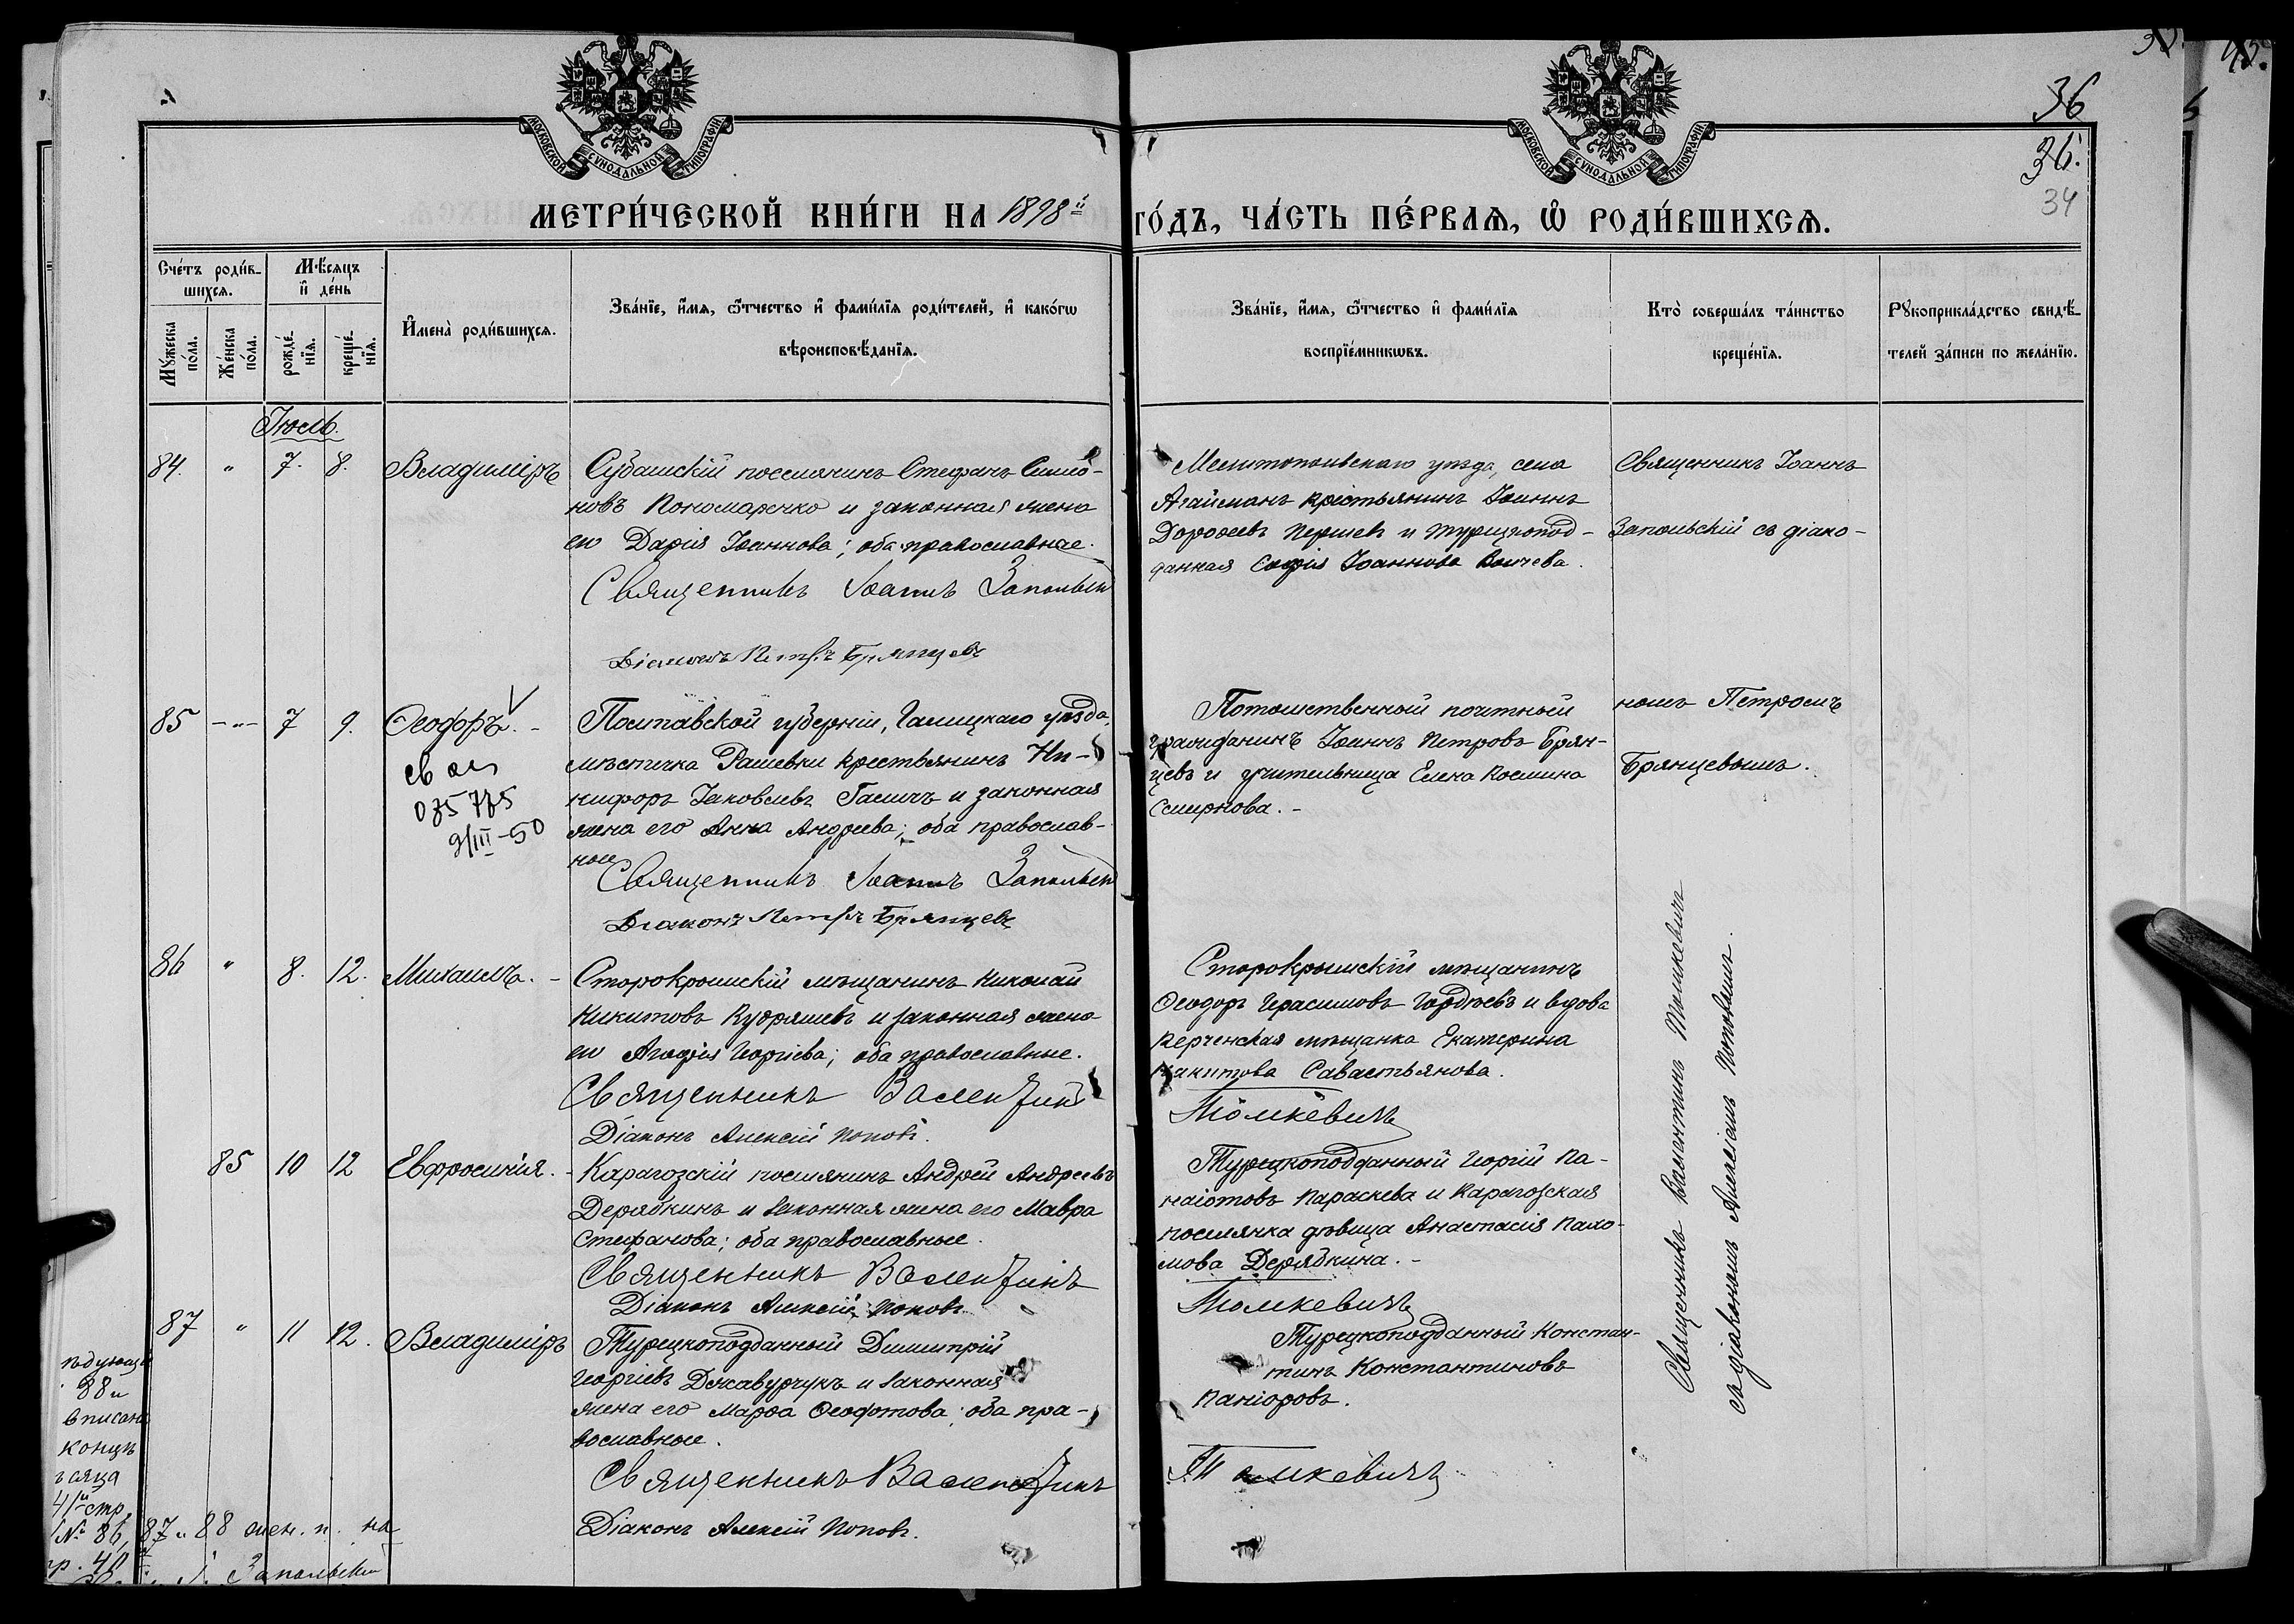 36
36.
34
МОСКОВСКОЙ СѴНОДАЛЬНОЙ ТИПОГРАФІИ
МОСКОВСКОЙ СѴНОДАЛЬНОЙ ТИПОГРАФІИ
МЕТРИ́ЧЕСКОЙ КНИ́ГИ НА 1898й ГО́ДЪ, ЧА́СТЬ ПЕ́РВАѦ, Ѡ҆ РОДИ́ВШИХСѦ.
Сче́тъ роди́в-
шихсѧ.
Мꙋжеска по́ла.
Же́нска по́ла.
Мѣ́сѧцъ
и҆ де́нь
рожде́-
нїѧ.
креще́-
нїѧ.
И҆мена̀ роди́вшихсѧ.
Зва́нїе, и҆́мѧ, ѻ҆́тчество и҆ фами́лїѧ роди́телей, и҆ како́гѡ
вѣроисповѣ́данїѧ.
Зва́нїе, и҆́мѧ, ѻ҆́тчество и҆ фами́лїѧ
воспрїе́мникѡвъ.
Кто̀ соверша́лъ та́инство
креще́нїѧ.
Рꙋкоприкла́дство свидѣ́-
телей за́писи по жела́нїю.
Іюль.
84. " 7. 8. Владиміръ
Субашскій поселянинъ Стефанъ Симо-
новъ Пономаренко и законная жена
его Дарія Іоаннова; оба православные.
Священникъ Іоаннъ Запольскій
Діаконъ Петръ Брянцевъ
Мелитопольскаго уѣзда, села
Агайманъ крестьянинъ Іоаннъ
Дороѳеевъ Першев и турецкопод-
данная Софія Іоаннова Волчева.
Священникъ Іоаннъ
Запольскій съ діако-
85 -"- 7 9. Ѳеодоръ. -
св ог
035775
9/III-50
Полтавской губерніи, Гадяцкаго уѣзда,
мѣстечка Рашевки крестьянинъ Ни-
нифоръ Іаковлевъ Галичъ и законная
жена его Анна Андреева; оба православ-
ные
Священникъ Іоаннъ Запольскій
Діаконъ Петръ Брянцевъ
Потомственный почтный
гражданинъ Іоаннъ Петровъ Брян-
цевъ и учительница Елена Космина
Смирнова. -
номъ Петромъ
Брянцевымъ.
86 " 8. 12. Михаилъ. -
Старокрымскій мѣщанинъ Николай
Никитовъ Кудряшевъ и законная жена
его Агафія Георгіева; оба православные.
Священникъ Валентинъ
Діаконъ Алексій Поповъ.
Старокрымскій мѣщанинъ
Ѳеодоръ Герасимовъ Гордѣевъ и вдова
керченская мѣщанка Екатерина
Никитова Савастьянова.
Томкевичъ
85 10 12 Евфросинія. -
Карагозскій поселянинъ Андрей Андреевъ
Дерябкинъ и законная жена его Мавра
Стефанова; оба православные.
Священникъ Валентинъ
Діаконъ Алексій Поповъ.
Турецкоподданный Георгій Па-
наіотовъ Параскева и Карагозская
поселянка дѣвица Анастасія Пахо-
мова Дерябкина. -
Томкевичъ
87 " 11 12. Владиміръ
Турецкоподданный Димитрій
Георгіевъ Джавурчукъ и законная
жена его Марѳа Ѳеофтова; оба пра-
вославные.
Священникъ Валентинъ
Діаконъ Алексій Поповъ.
Турецкоподданный Констан-
тинъ Константиновъ
Паніоровъ.
Томкевичъ
Священникъ Валентинъ Томкевичъ
съ діакономъ Алексіемъ Поповымъ.
88 и
вписана
концѣ
41й стр.
№ 86, 87 и 88 жен. п. на
Запольскій